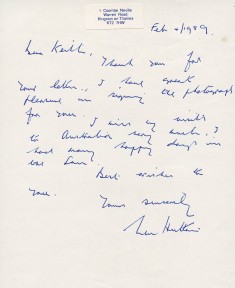 1 Coombe Neville
Warren Road
Kingston on Thames
KT2 7HW
Feb 2/1989.
Dear Keith,
Thank you for
your letter, I have great
pleasure in signing the photograph
for you. I miss my visits
to Australia very much. I
had many happy days in
the Sun
Best wishes to
you.
Yours sincerely
Len Hutton